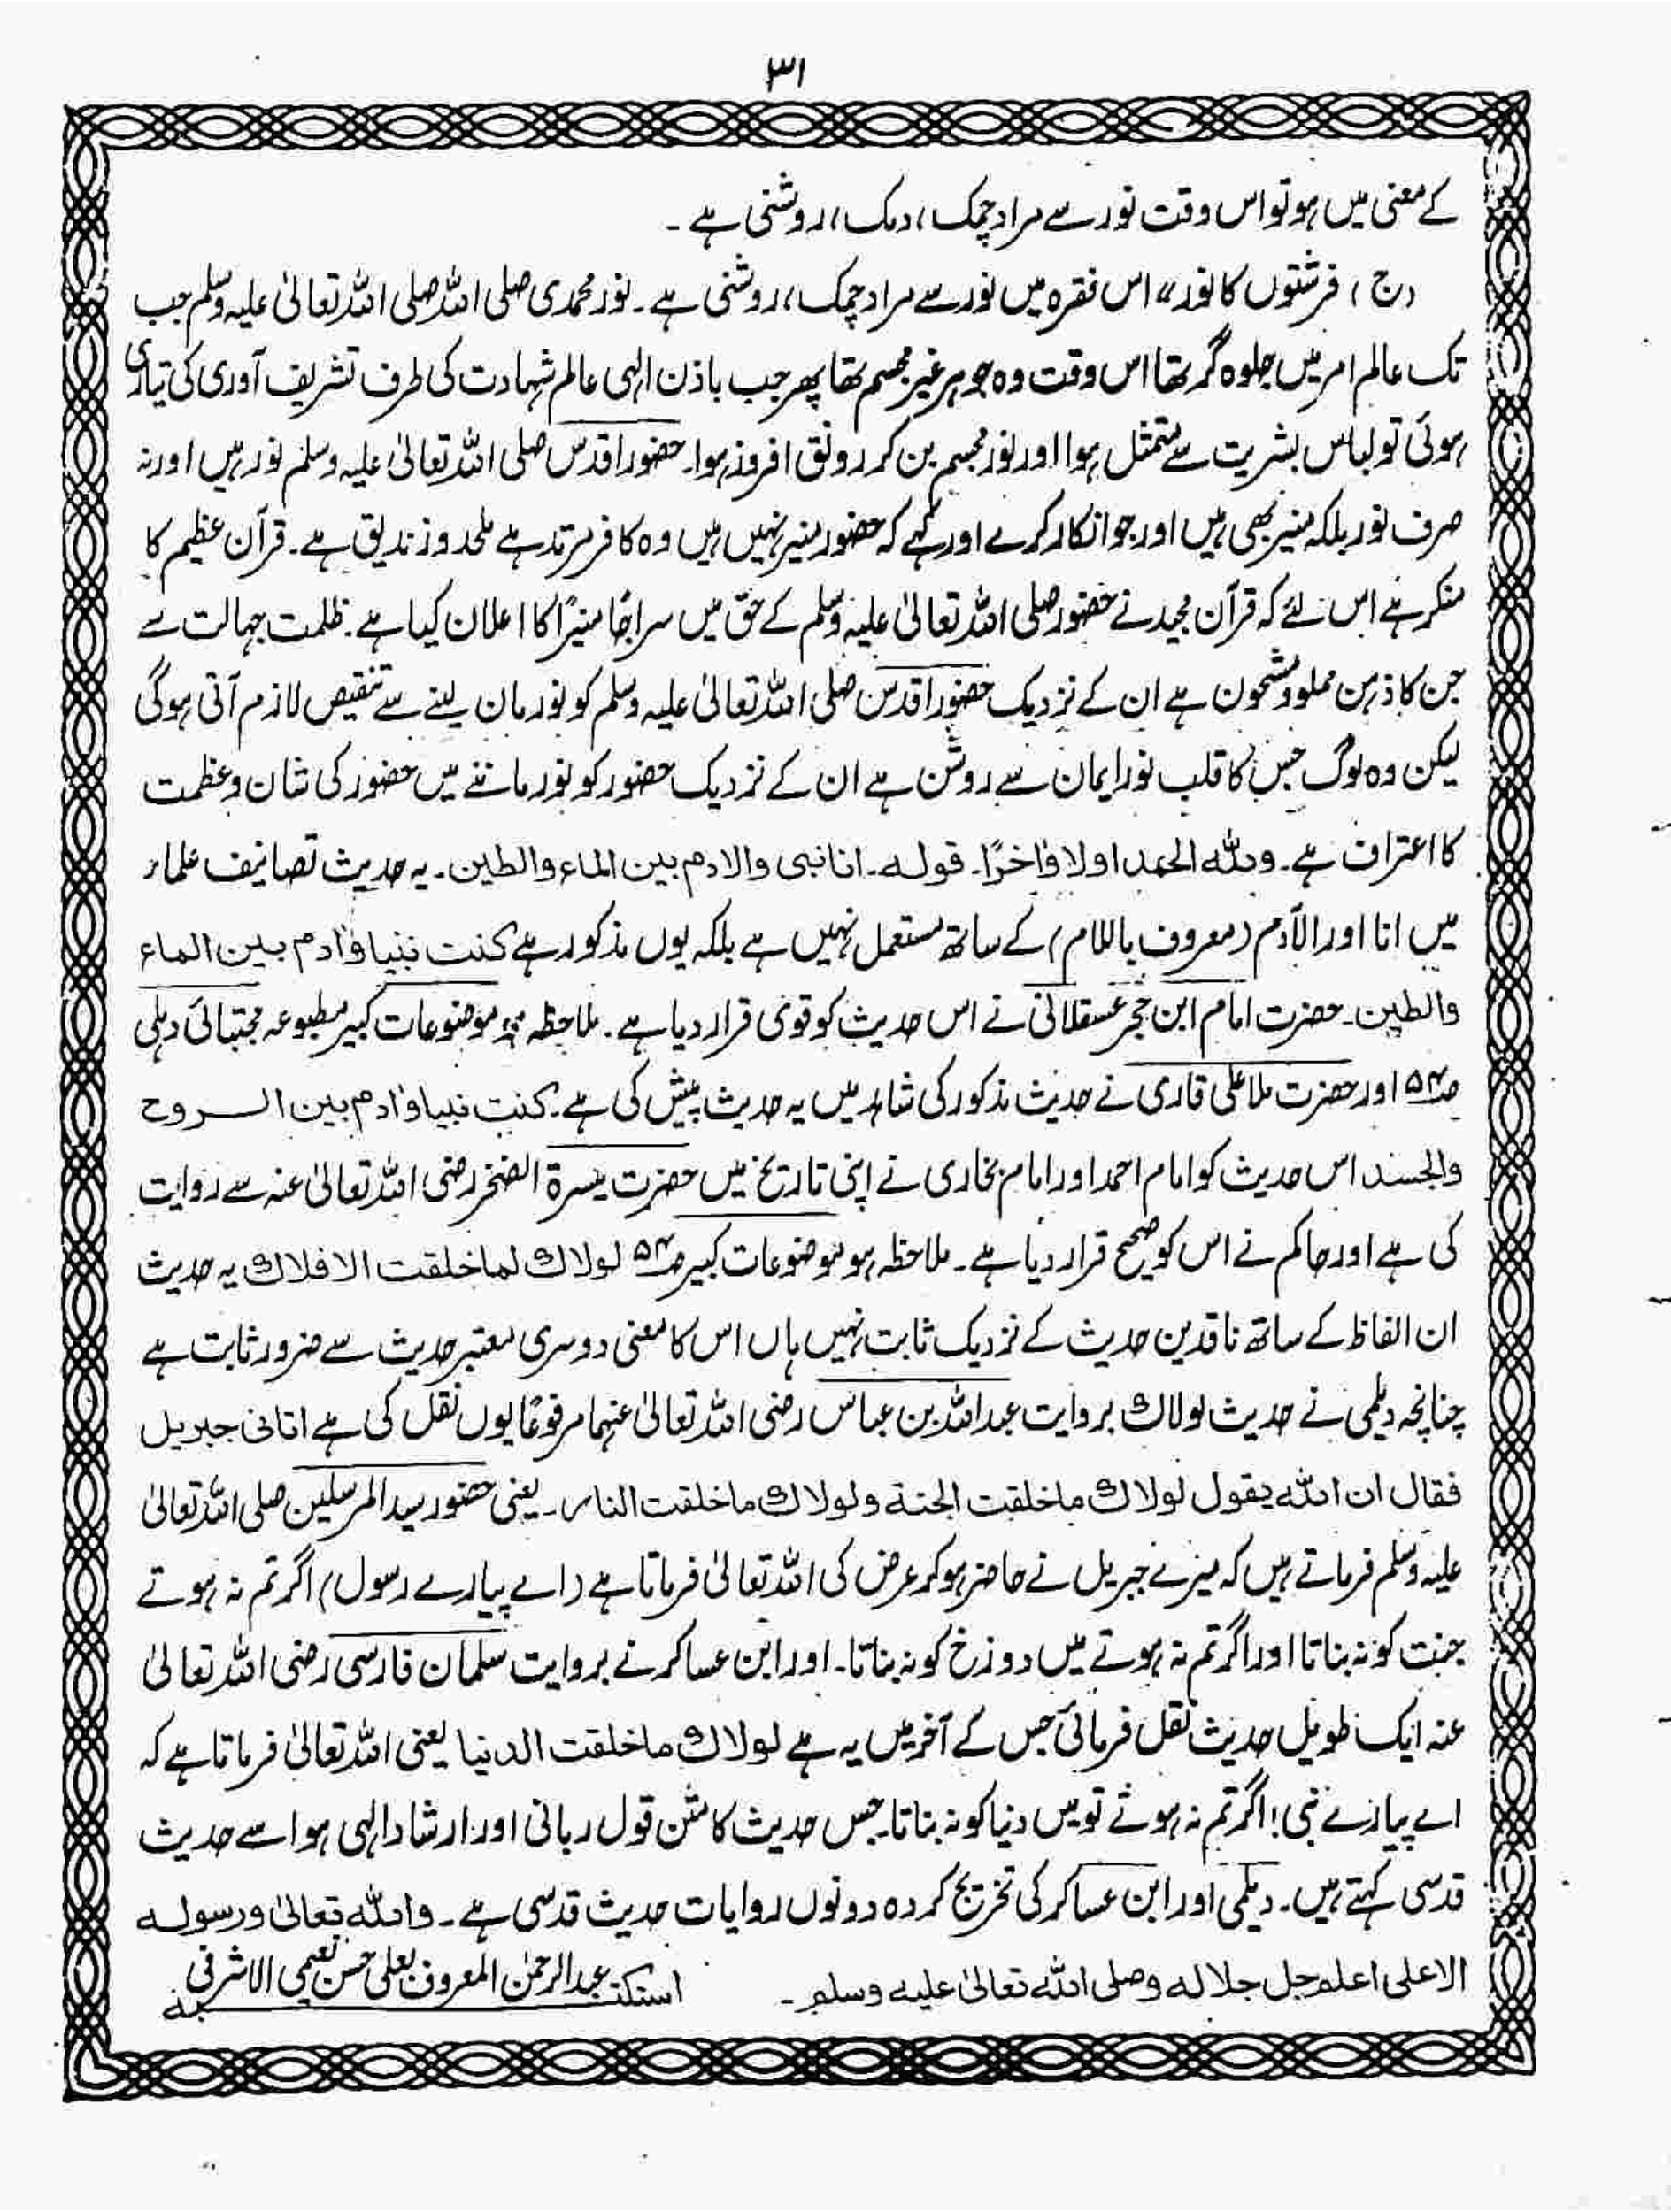 ۳۱
کے معنی میں ہو تو اس وقت نور سے مراد چمک، دمک، روشنی ہے۔
(ج) فرشتوں کا نور ،، اس فقرہ میں نور سے مراد چمک، روشنی ہے۔ نور محمدی صلی اللہ صلی اللہ تعالیٰ علیہ وسلم جب
تک عالم امر میں جلوہ گر تھا اس وقت وہ جوہر غیر مجسم تھا پھر جب باذن الہی عالم شہادت کی طرف تشریف آوری کی تیاری
ہوئی تو لباس بشریت سے متمثل ہوا اور نور مجسم بن کر رونق افروز ہوا۔ حضور اقدس صلی اللہ تعالیٰ علیہ وسلم نور ہیں اور نہ
صرف نور بلکہ منیر بھی ہیں اور جو انکار کرے اور کہے کہ حضور منیر نہیں ہیں وہ کافر مرتد ہے ملحد و زندیق ہے۔ قرآن عظیم کا
منکر ہے اس لئے کہ قرآن مجید نے حضور صلی اللہ تعالیٰ علیہ وسلم کے حق میں سراجًا منیرًا کا اعلان کیا ہے۔ ظلمت جہالت سے
جن کا ذہن مملو و مشحون ہے ان کے نزدیک حضور اقدس صلی اللہ تعالیٰ علیہ وسلم کو نور مان لینے سے تنقیص لازم آتی ہوگی
لیکن وہ لوگ جس کا قلب نور ایمان سے روشن ہے ان کے نزدیک حضور کو نور ماننے میں حضور کی شان و عظمت
کا اعتراف ہے۔ وللہ الحمد اولا واٰخرًا۔ قولہ۔ انا نبی والادم بین الماء والطین۔ یہ حدیث تصانیف علماء
میں انا اور الآدم (معروف باللام) کے ساتھ مستعمل نہیں ہے بلکہ یوں مذکور ہے کنت نبیا واٰدم بین الماء
والطین۔ حضرت امام ابن حجر عسقلانی نے اس حدیث کو قوی قرار دیا ہے۔ ملاحظہ ہو موضوعات کبیر مطبوعہ مجتبائی دہلی
صـ۵۴ اور حضرت ملا علی قاری نے حدیث مذکور کی شاہد میں یہ حدیث پیش کی ہے۔ کنت نبیا واٰدم بین الـروح
والجسد اس حدیث کو امام احمد اور امام بخاری نے اپنی تاریخ میں حضرت میسرۃ الضخر رضی اللہ تعالیٰ عنہ سے روایت
کی ہے اور حاکم نے اس کو صحیح قرار دیا ہے۔ ملاحظہ ہو موضوعات کبیر صـ۵۴ لولاک لما خلقت الافلاک یہ حدیث
ان الفاظ کے ساتھ ناقدین حدیث کے نزدیک ثابت نہیں ہاں اس کا معنی دوسری معتبر حدیث سے ضرور ثابت ہے
چنانچہ دیلمی نے حدیث لولاک بروایت عبداللہ بن عباس رضی اللہ تعالیٰ عنہما مرفوعًا یوں نقل کی ہے اتانی جبریل
فقال ان اللہ یقول لولاک ما خلقت الجنۃ ولولاک ما خلقت النار۔ یعنی حضور سید المرسلین صلی اللہ تعالیٰ
علیہ وسلم فرماتے ہیں کہ میرے جبریل نے حاضر ہو کر عرض کی اللہ تعالیٰ فرماتا ہے (اے پیارے رسول) اگر تم نہ ہوتے
جنت کو نہ بناتا اور اگر تم نہ ہوتے میں دوزخ کو نہ بناتا۔ اور ابن عساکر نے بروایت سلمان فارسی رضی اللہ تعالیٰ
عنہ ایک طویل حدیث نقل فرمائی جس کے آخر میں یہ ہے لولاک ما خلقت الدنیا یعنی اللہ تعالیٰ فرماتا ہے کہ
اے پیارے نبی! اگر تم نہ ہوتے تو میں دنیا کو نہ بناتا۔ جس حدیث کا متن قول ربانی اور ارشاد الہی ہو اسے حدیث
قدسی کہتے ہیں۔ دیلمی اور ابن عساکر کی تخریج کردہ دونوں روایات حدیث قدسی ہے۔ واللہ تعالیٰ ورسولہ
الاعلی اعلم جل جلالہ وصلی اللہ تعالیٰ علیہ وسلم۔
عبدالرحمٰن المعروف بعلی حسن نعیمی الاشرفی